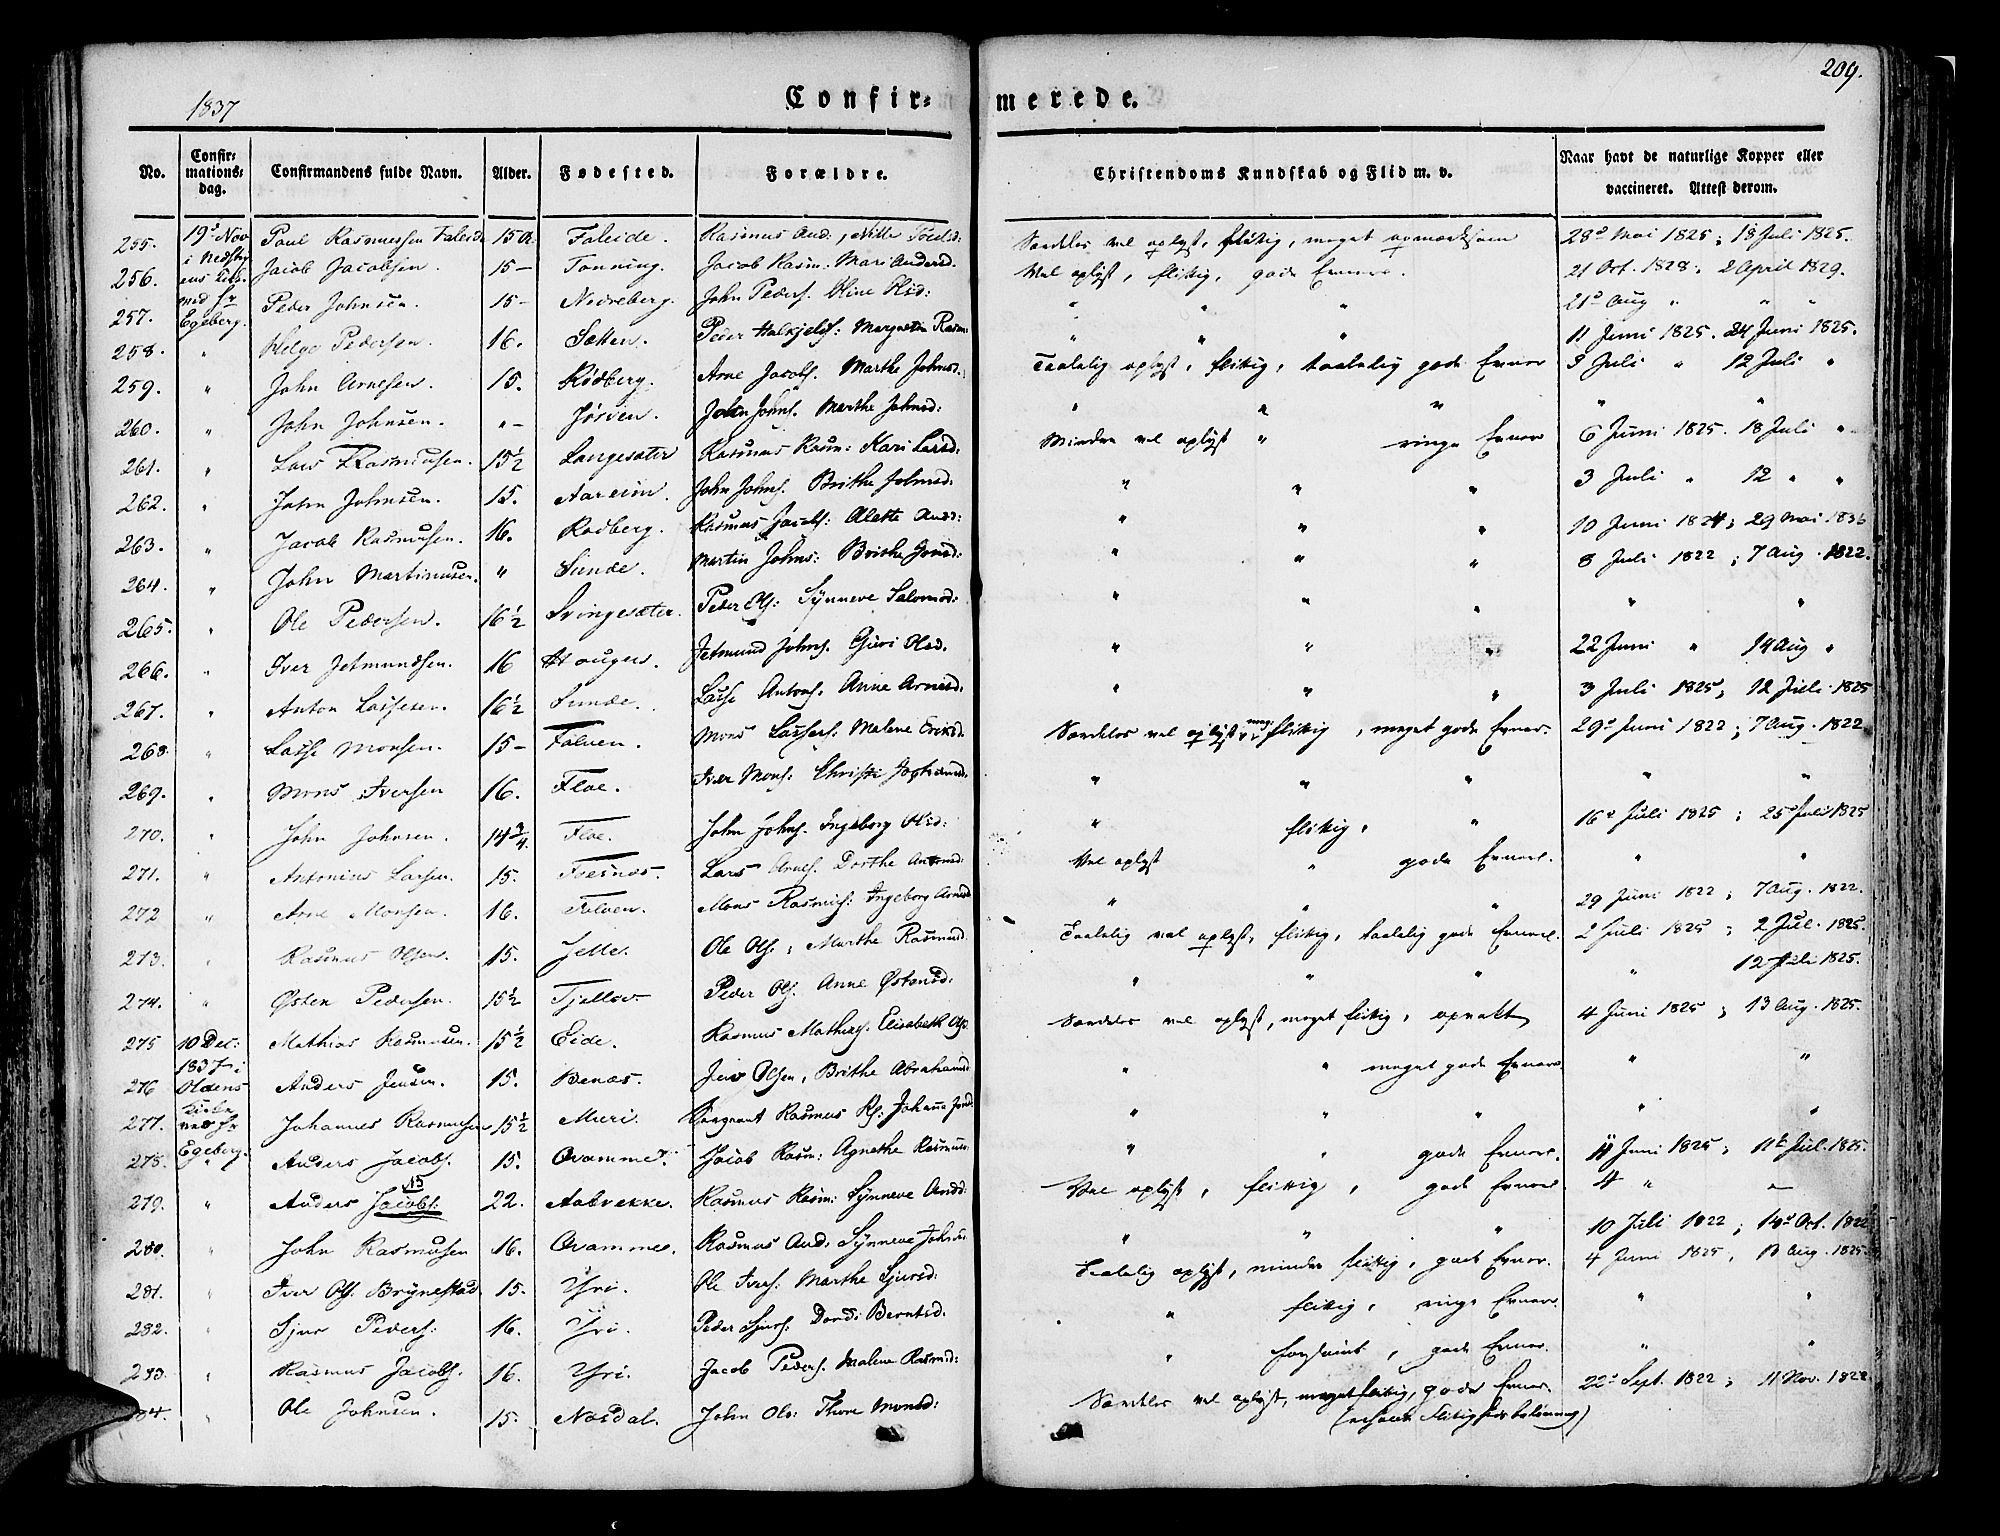 209.
1837
Confir- merede.
No.
Confir-
mations-
dag.
Confirmandens fulde Navn.
Alder.
Fødested.
Forældre.
Christendoms Kundskab og Flid m. v.
Naar havt de naturlige Kopper eller
vaccineret. Attest derom.
255. 19d Nov Paul Rasmussen Faleide 15 A. Faleide. Rasmus And: Særdeles vel oplyst, flittig, meget opmærksom 28d Mai 1825; 18 Juli 1825.
256. Jacob Jacobsen. 15 — Tonning. Jacob Rasm: Mari Andersd. Vel oplyst, flittig, gode Evner. 21 Oct. 1828; 2 April 1829.
257. Egeberg. Peder Johnsen. 15 — Nedreberg. John Peders. Eline Olsd: " " " 21d Aug " " "
258. " Helge Pedersen. 16. Sætten. Peder Margrethe Rasm: " " " 11 Juni 1825. 24 Juni 1825.
259. " John Arnesen. 15. Rødberg. Arne Jacobs. Marthe Johnsd. Taalelig oplyst, flittig, taalelig gode Evner 3 Juli " 12 Juli "
260. " John Johnsen. " — Jørven. John Johns. Marthe Johnsd: " " " " "
261. " Lars Rasmusen. 15½ Langesæter Rasmus Rasm: Kari Larsd: Mindre vel oplyst " ringe Evner 6 Juni 1825. 18 Juli "
262. " John Johnsen. 15. Aareim. John Johns. Brithe Johnsd: " " " 3 Juli " 12 " "
263. " Jacob Rasmusen. 16. Rødberg. Rasmus Jacobs: Alette Andd: " " " 10 Juni 1824; 29 Mai 1836
264. " John Martinusen. " Sunde. Martin Johns: Brithe Jonsd: " " " 8 Juli 1822; 7 Aug. 1822.
265. " Ole Pedersen. 16½ Svingesæter. Peder Ols: Synneve Salomod: " " " " "
266. " Iver Jetmundsen. 16 Hougen. Jetmund Johns. Guri Olsd. " " " 22 Juni " 14 Aug "
267. " Anton Lassesen. 16½ Sunde. Lasse Antons. Anne Arnesd. " " " 3 Juli 1825; 12 Juli 1825
268. " Lasse Monsen. 15 — Folven. Mons Lasses. Malene Eriksd. Særdeles vel oplyst, meg: flittig, meget gode Evner. 29d Juni 1822; 7 Aug. 1822
269. " Mons Iversen 16. Floe. Iver Mons: Christi " " " " "
270. " John Johnsen. 14¾ Floe. John Johns. Ingeborg Olsd: " flittig, " 16d Juli 1825; 25d Juli 1825
271. " Antonius Larsen. 15. Træsnæs. Lars Arnes. Dorthe Antonsd: Vel oplyst " gode Evner. " "
272 " Arne Monsen. 16. Folven. Mons Rasmus: Ingeborg Arnesd " " " 29 Juni 1822; 7 Aug. 1822.
273. " Rasmus Olsen. 15. Jelle. Ole Ols; Marthe Rasmusd. Taalelig vel oplyst, flittig, taalelig gode Evner. 2 Juli 1825; 2 Jul. 1825.
274. " Østen Pedersen. 15½ Tjellov. Peder Ols. Anne Østensd: " " " " 12 Juli 1825.
275 10 Dec: Mathias Rasmusen. 15½ Eide. Rasmus Mathias. Elisabeth Ols. Særdeles vel oplyst, meget flittig, opvakt 4 Juni 1825; 13 Aug. 1825.
276 1837 i Oldens Anders Jensen. 15. Benæs. Jens Olsen, Brithe Abrahamsd " " meget gode Evner. " "
277. Kirke ved Hr Johannes Rasmusen 15½ Muri. Sergeant Rasmus Rs: Johanne Jonsd " " " " "
278. Egeberg. Anders Jacobs. 15. Qvamme. Jacob Rasm: Agnethe Rasmus " " gode Evner. 11 Juni 1825; 11t Jul. 1825.
279. " Anders Jacobs. 22. Aabrekke. Rasmus Rasm: Synneve Andsd: Vel oplyst, flittig, gode Evner. 4 " —
280. " John Rasmusen 16. Qvamme. Rasmus And. Synneve Johnsd " " " 10 Juli 1822; 14d Oct. 1822
281. " Iver Ols. Brynestad 15. Yri. Ole Ivers: Marthe Sjursd: Taalelig oplyst, mindre flittig, gode Evner. 4 Juni 1825; 13 Aug. 1825.
282. " Sjur Peders: 16. Yri. Peder Sjurs: Dordi Berntsd: " flittig, ringe Evner. " "
283. " Rasmus Jacobs. 16. Yri. Jacob Peders. Malene Rasmusd: " forsømt, gode Evner. " "
284. " Ole Johnsen. 15. Nosdal. John Ols: Thore Monsd: Særdeles vel oplyst, meget flittig, gode Evner. 22d Sept. 1822; 11 Nov. 1822